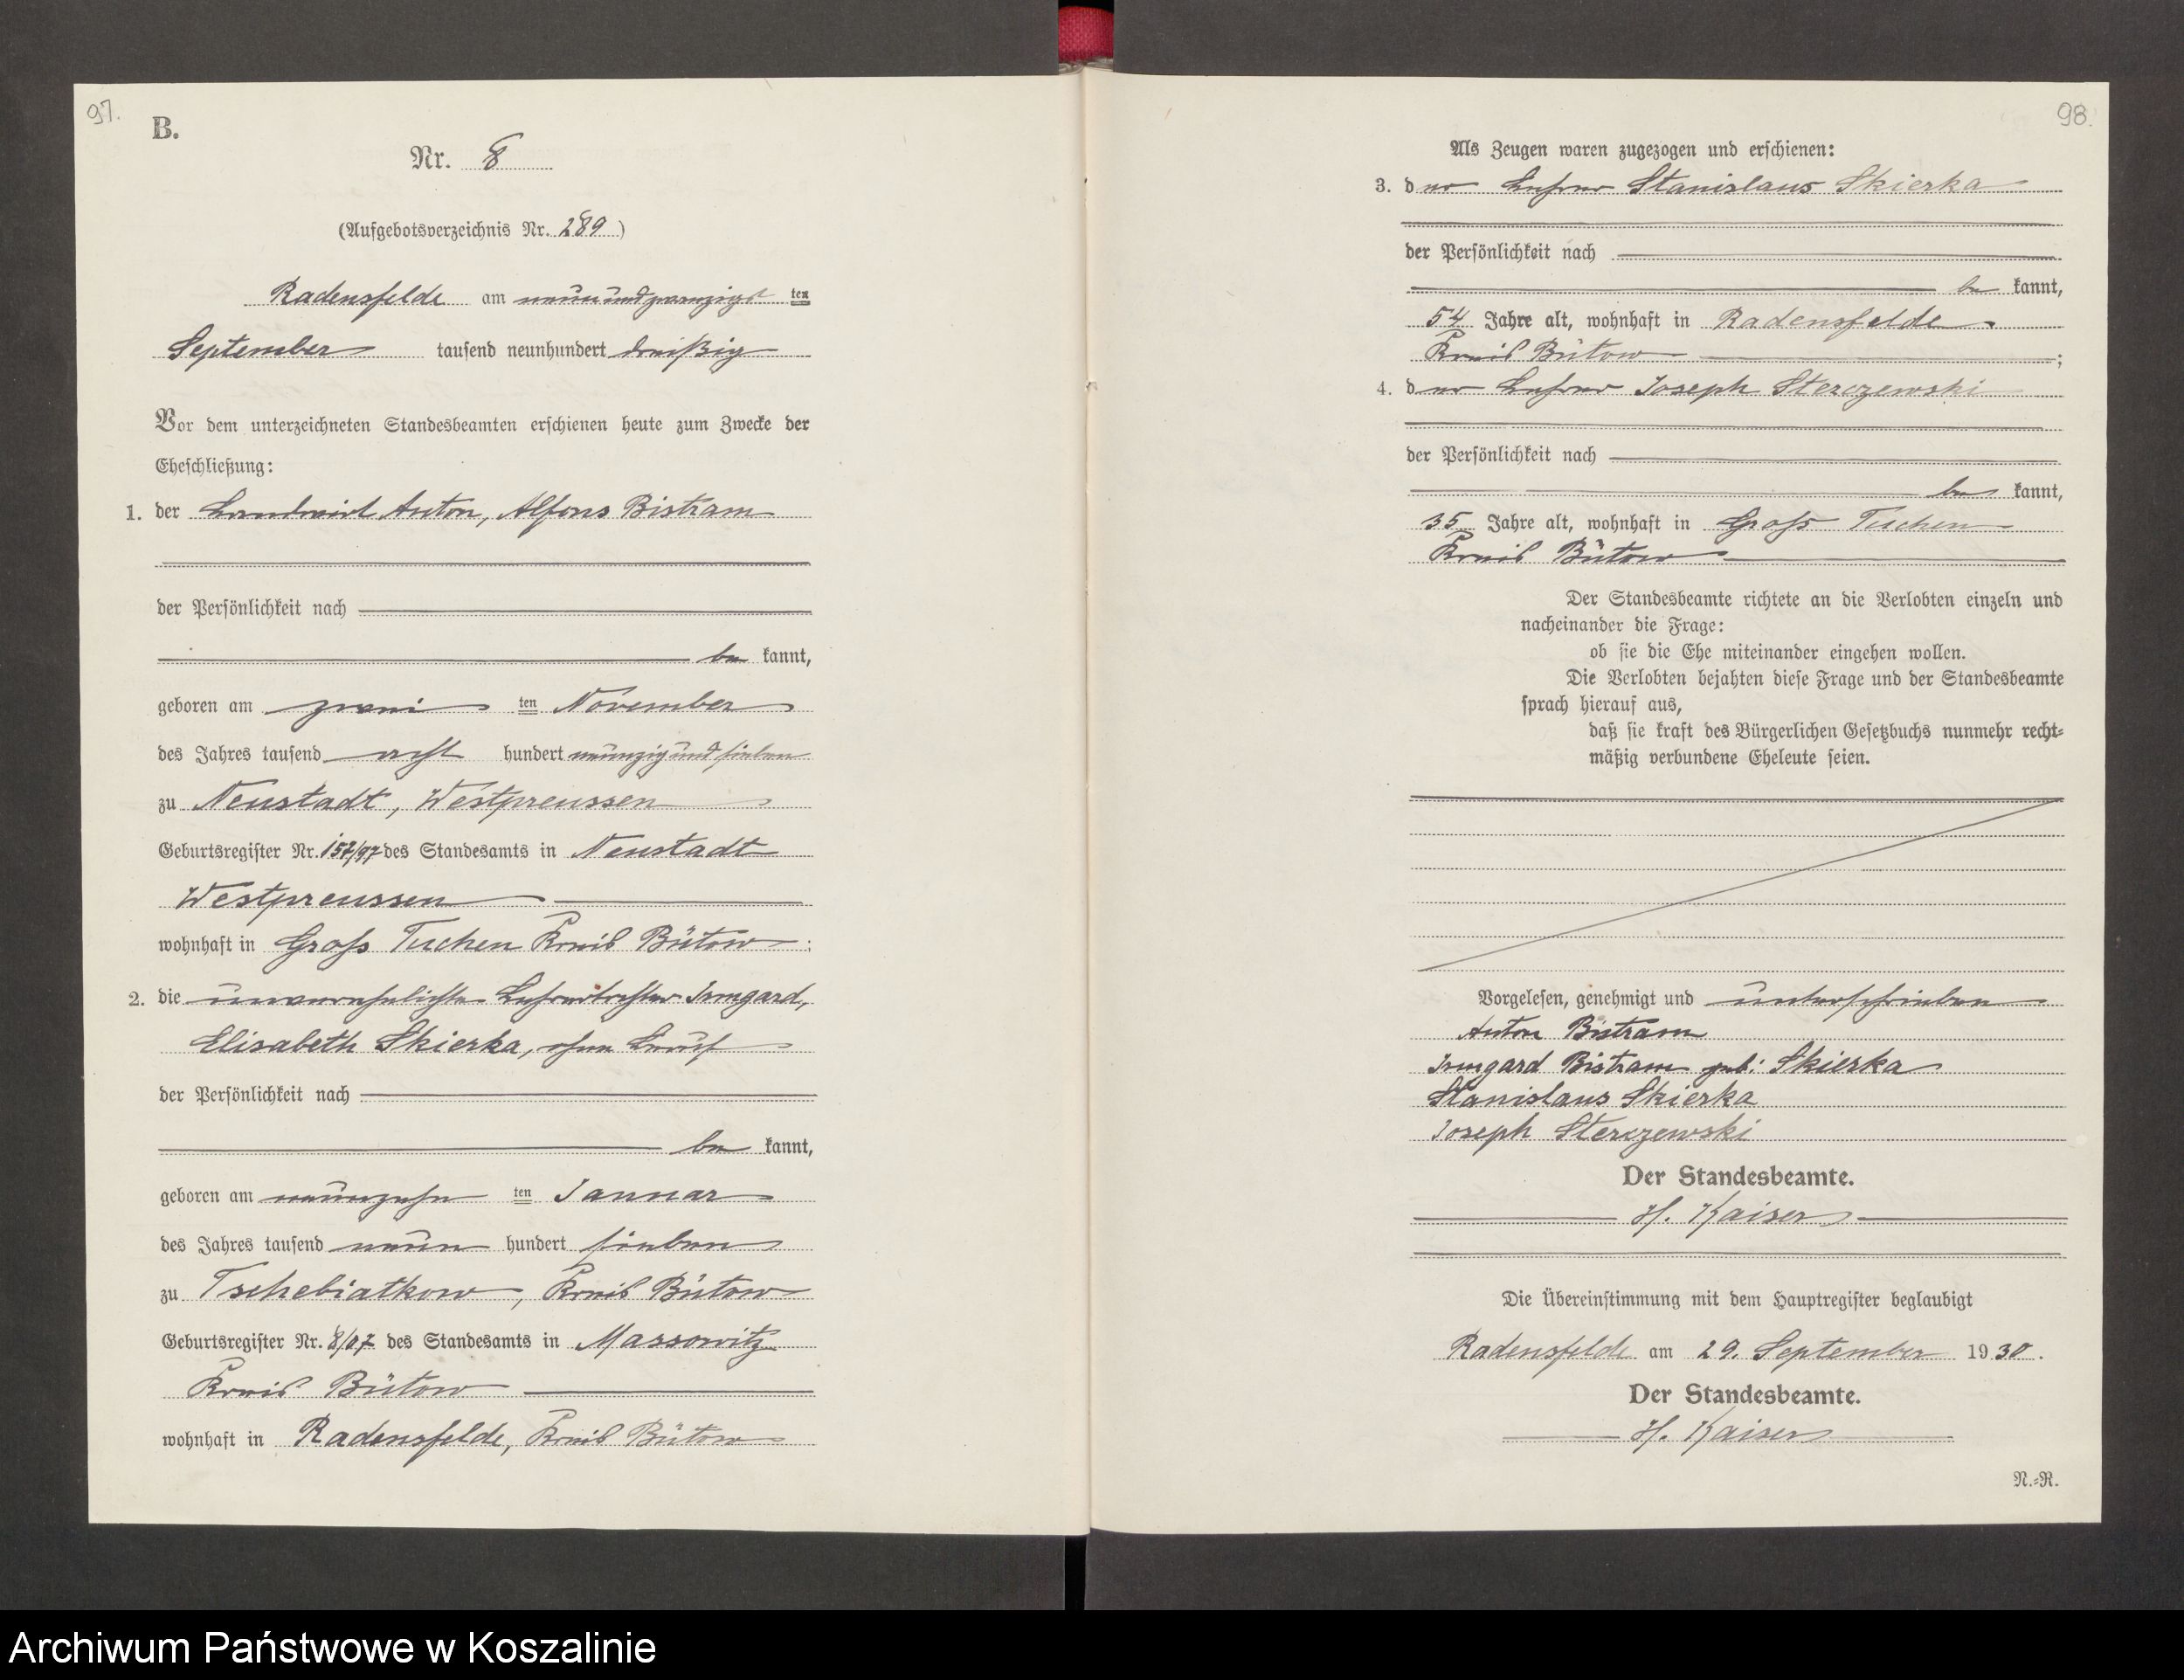 97.
B.
Nr. 8
(Aufgebotsverzeichnis Nr. 289)
Radensfelde am neunundzwanzigst ten
September tausend neunhundert dreißig
Vor dem unterzeichneten Standesbeamten erschienen heute zum Zwecke der
Eheschließung:
1. der Landwirt Anton, Alfons Bistram
der Persönlichkeit nach
be kannt,
geboren am zwei ten November
des Jahres tausend acht hundert neunzig und sieben
zu Neustadt, Westpreussen
Geburtsregister Nr. 157/97 des Standesamts in Neustadt
Westpreussen
wohnhaft in Groß Tuchen Kreis Bütow;
2. die unverehelichte Lehrertochter Irmgard,
Elisabeth Skierka, ohne Beruf
der Persönlichkeit nach
be kannt,
geboren am neunzehn ten Januar
des Jahres tausend neun hundert sieben
zu Tschebiatkow, Kreis Bütow
Geburtsregister Nr. 8/07 des Standesamts in Massowitz
Kreis Bütow
wohnhaft in Radensfelde, Kreis Bütow
98.
Als Zeugen waren zugezogen und erschienen:
3. der Lehrer Stanislaus Skierka
der Persönlichkeit nach
be kannt,
54 Jahre alt, wohnhaft in Radensfelde
Kreis Bütow;
4. der Lehrer Joseph Sterczewski
der Persönlichkeit nach
be kannt,
35 Jahre alt, wohnhaft in Groß Tuchen
Kreis Bütow
Der Standesbeamte richtete an die Verlobten einzeln und
nacheinander die Frage:
ob sie die Ehe miteinander eingehen wollen.
Die Verlobten bejahten diese Frage und der Standesbeamte
sprach hierauf aus,
daß sie kraft des Bürgerlichen Gesetzbuchs nunmehr recht-
mäßig verbundene Eheleute seien.
Vorgelesen, genehmigt und unterschrieben
Anton Bistram
Irmgard Bistram geb: Skierka
Stanislaus Skierka
Joseph Sterczewski
Der Standesbeamte.
H. Kaiser
Die Übereinstimmung mit dem Hauptregister beglaubigt
Radensfelde am 29. September 1930.
Der Standesbeamte.
H. Kaiser
N.-R.
Archiwum Państwowe w Koszalinie